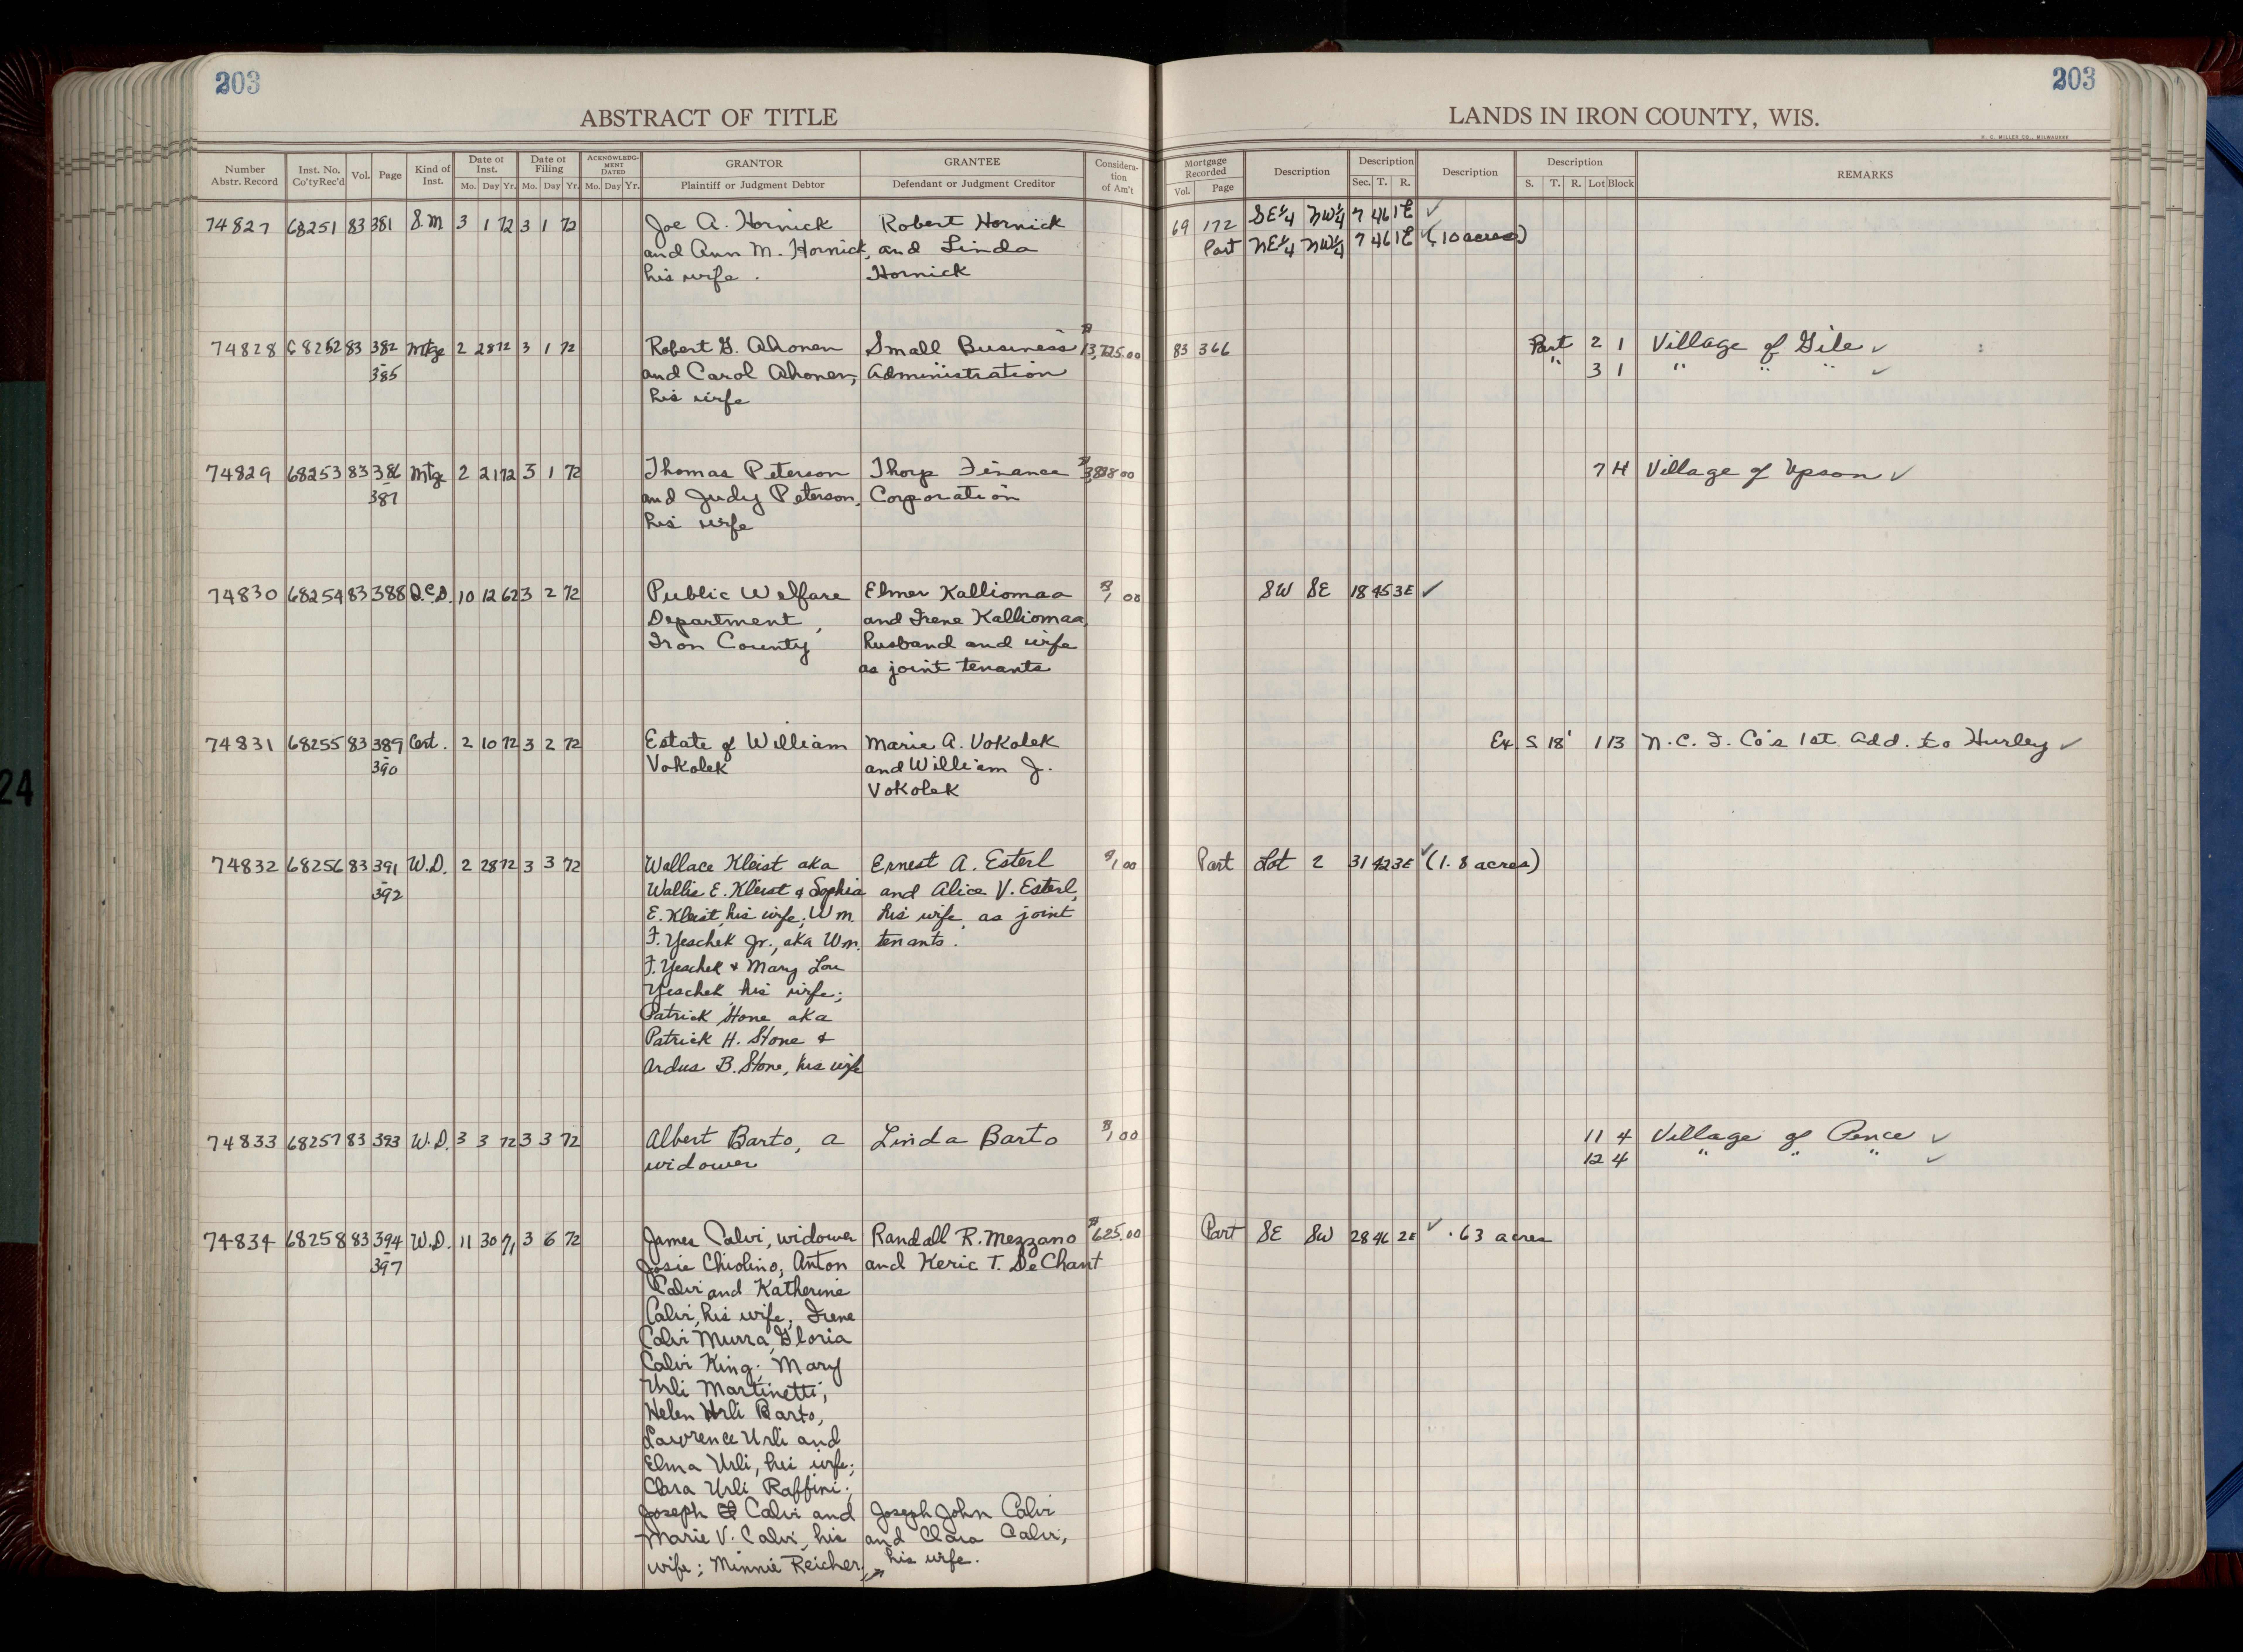 203
203
ABSTRACT OF TITLE
LANDS IN IRON COUNTY, WIS.
H. C. MILLER CO., MILWAUKEE
Number Abstr. Record
Inst. No. Co'tyRec'd
Vol.
Page
Kind of Inst.
Date of Inst.
Mo. Day Yr.
Date of Filing
Mo. Day Yr.
ACKNOWLEDGMENT DATED
Mo. Day Yr.
GRANTOR
Plaintiff or Judgment Debtor
GRANTEE
Defendant or Judgment Creditor
Consideration of Am't
Mortgage Recorded
Vol. Page
Description
Description
Sec. T. R.
Description
Description
S. T. R. Lot Block
REMARKS
74827 68251 83 381 S.M 3 1 72 3 1 72 Joe A. Hornick Robert Hornick 69 172 SE¼ NW¼ 7 46 1E ✓
and Ann M. Hornick, and Linda Part NE¼ NW¼ 7 46 1E ✓ (10 acres)
his wife. Hornick
74828 68252 83 382 Mtge 2 28 72 3 1 72 Robert G. Ahonen Small Business $13,725.00 83 366 Part 2 1 Village of Gile ✓
- 385 and Carol Ahonen, Administration " 3 1 " " " ✓
his wife
74829 68253 83 386 Mtge 2 21 72 3 1 72 Thomas Peterson Thorp Finance 7 H Village of Upson ✓
- 387 and Judy Peterson, Corporation
his wife
74830 68254 83 388 Q.C.D. 10 12 62 3 2 72 Public Welfare Elmer Kalliomaa $1 00 SW SE 18 45 3E ✓
Department, and Irene Kalliomaa,
Iron County husband and wife
as joint tenants
74831 68255 83 389 Cert. 2 10 72 3 2 72 Estate of William Marie A. Vokolek Ex. S 18' 1 13 N.C.I. Co's 1st. Add. to Hurley ✓
- 390 Vokolek and William J.
Vokolek
74832 68256 83 391 W.D. 2 28 72 3 3 72 Wallace Kleist aka Ernest A. Esterl $1 00 Part Lot 2 31 42 3E ✓ (1.8 acres)
- 392 Wallie E. Kleist & Sophia and Alice V. Esterl,
E. Kleist, his wife; Wm. his wife, as joint
F. Yeschek Jr., aka Wm. tenants.
F. Yeschek & Mary Lou
Yeschek, his wife;
Patrick Stone aka
Patrick H. Stone &
Ardus B. Stone, his wife
74833 68257 83 393 W.D. 3 3 72 3 3 72 Albert Barto, a Linda Barto $1 00 11 4 Village of Pence ✓
widower 12 4 " " " ✓
74834 68258 83 394 W.D. 11 30 71 3 6 72 James Calvi, widower Randall R. Mezzano $625.00 Part SE SW 28 46 2E ✓ .63 acres
- 397 Josie Chiolino, Anton and Keric T. DeChant
Calvi and Katherine
Calvi, his wife, Irene
Calvi Murra, Gloria
Calvi King; Mary
Urli Martinetti;
Helen Urli Barto,
Lawrence Urli and
Elma Urli, his wife;
Clara Urli Raffini;
Joseph Calvi and Joseph John Calvi
Marie V. Calvi, his and Clara Calvi,
wife; Minnie Reicher, his wife.
24